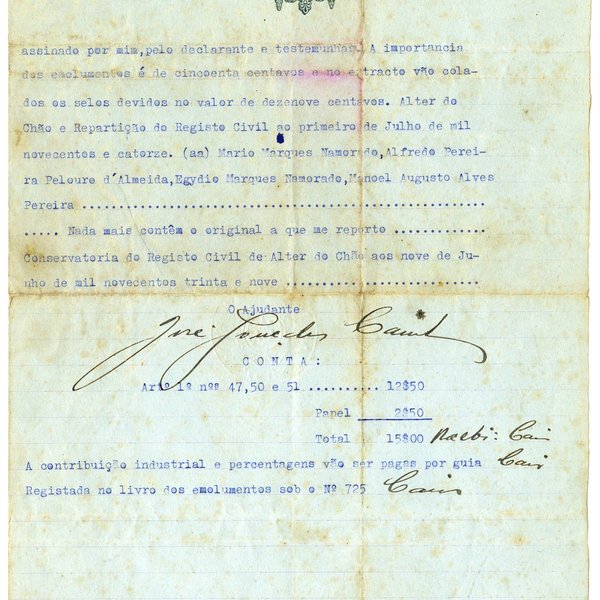 assinado por mim,pelo declarante e testemunhas. A importancia
dos emolumentos é de cincoenta centavos e no extracto vão cola-
dos os selos devidos no valor de dezenove centavos. Alter do
Chão e Repartição do Registo Civil ao primeiro de Julho de mil
novecentos e catorze. (aa) Mario Marques Namorado,Alfredo Perei-
ra Peloure d'Almeida,Egydio Marques Namorado,Manoel Augusto Alves
Pereira ........................................................
..... Nada mais contêm o original a que me reporto .............
Conservatoria do Registo Civil de Alter do Chão aos nove de Ju-
nho de mil novecentos trinta e nove ...........................
O Ajudante
José
C O N T A :
Artº 1º nºs 47,50 e 51 .......... 12$50
Papel 2$50
Total 15$00 Recebi:
A contribuição industrial e percentagens vão ser pagas por guia
Registada no livro dos emolumentos sob o Nº 725